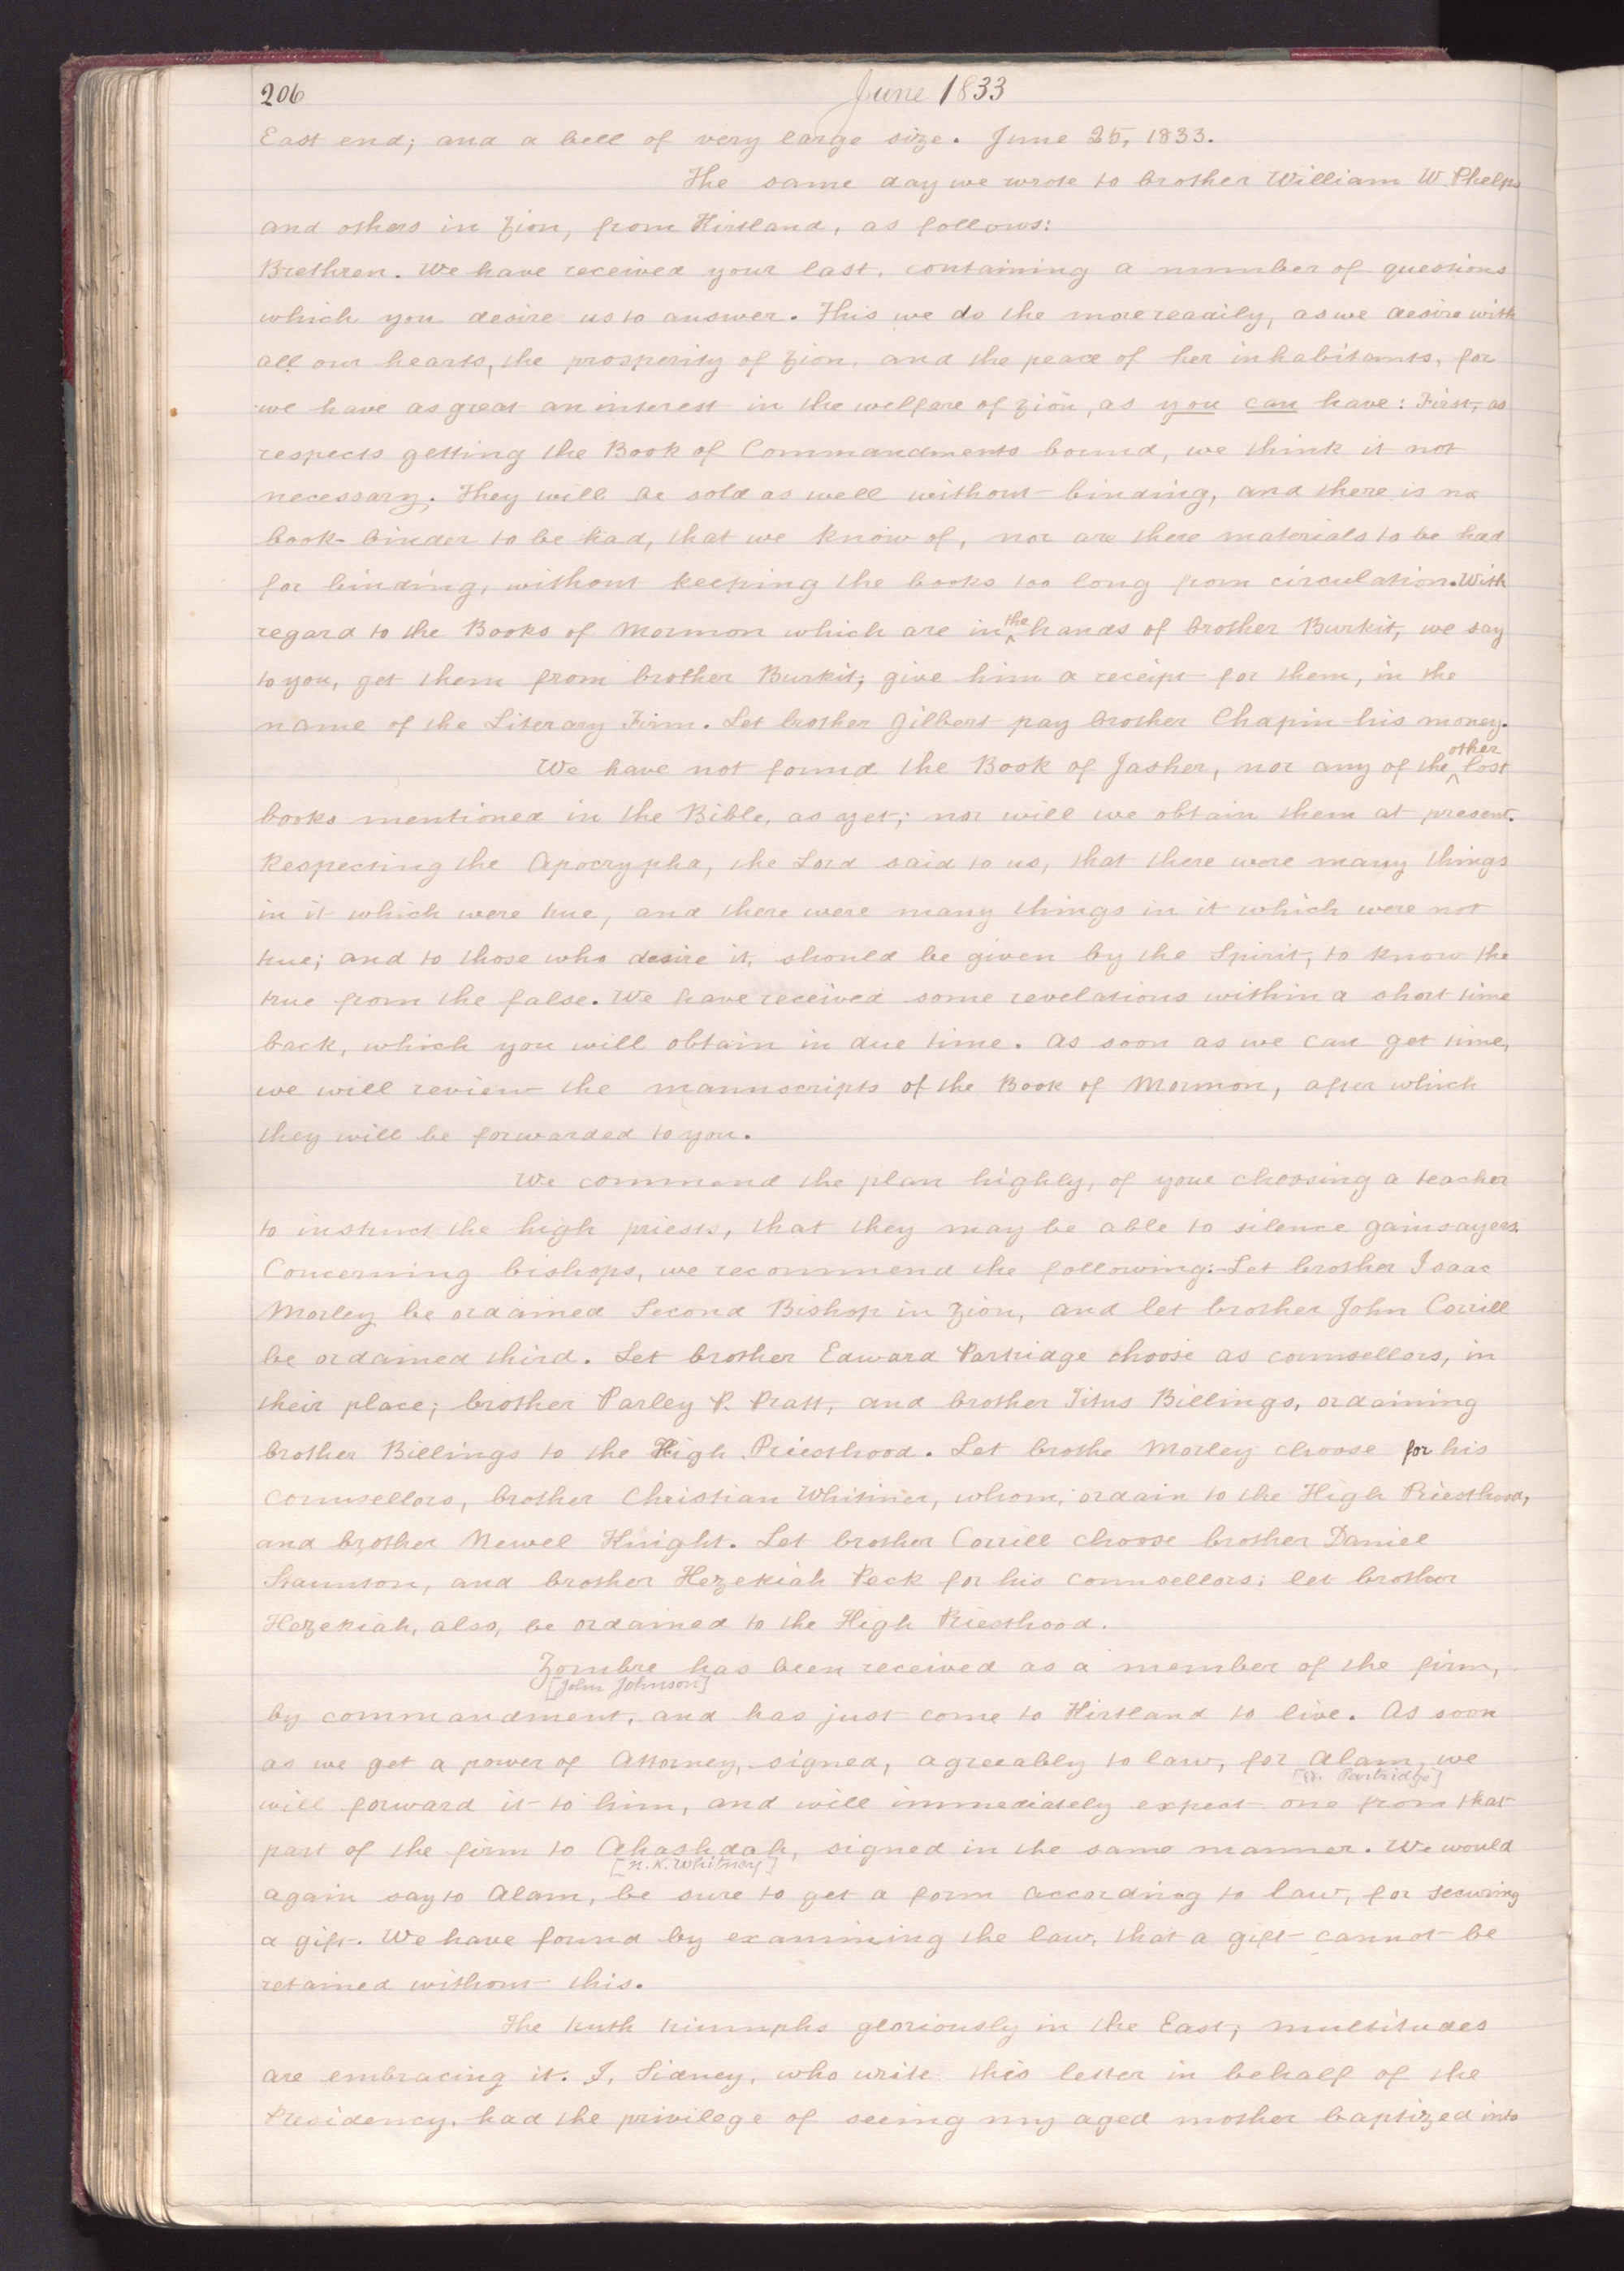 206
June 1833
East end; and a bell of very large size. June 25, 1833.
The same day we wrote to brother William W. Phelps
and others in Zion, from Kirtland, as follows:
Brethren. We have received your last, containing a number of questions
which you desire us to answer. This we do the more readily, as we desire with
all our hearts, the prosperity of Zion, and the peace of her inhabitants, for
we have as great an interest in the welfare of Zion, as you can have: First, as
respects getting the Book of Commandments bound, we think it not
necessary. They will be sold as well without binding, and there is no
book-binder to be had, that we know of, nor are there materials to be had
for binding, without keeping the books too long from circulation. With
regard to the Books of Mormon which are in the hands of brother Burkit, we say
to you, get them from brother Burkit; give him a receipt for them, in the
name of the Literary Firm. Let brother Gilbert pay brother Chapin his money.
We have not found the Book of Jasher, nor any of the other lost
books mentioned in the Bible, as yet; nor will we obtain them at present.
Respecting the Apocrypha, the Lord said to us, that there were many things
in it which were true, and there were many things in it which were not
true; and to those who desire it, should be given by the Spirit, to know the
true from the false. We have received some revelations within a short time
back, which you will obtain in due time. As soon as we can get time,
we will review the manuscripts of the Book of Mormon, after which
they will be forwarded to you.
We commend the plan highly, of your choosing a teacher
to instruct the high priests, that they may be able to silence gainsayers.
Concerning bishops, we recommend the following:-Let brother Isaac
Morley be ordained Second Bishop in Zion, and let brother John Corrill
be ordained third. Let brother Edward Partridge choose as counsellors, in
their place; brother Parley P. Pratt, and brother Titus Billings, ordaining
brother Billings to the High Priesthood. Let brothe Morley choose for his
counsellors, brother Christian Whitmer, whom, ordain to the High Priesthood,
and brother Newel Knight. Let brother Corrill choose brother Daniel
Staunton, and brother Hezekiah Peck for his counsellors; let brother
Hezekiah, also, be ordained to the High Priesthood.
Zombre has been received as a member of the firm,
[John Johnson]
by commandment, and has just come to Kirtland to live. As soon
as we get a power of Attorney, signed, agreeably to law, for Alam, we
[E. Partridge]
will forward it to him, and will immediately expect one from that
part of the firm to Ahashdah, signed in the same manner. We would
[N. K. Whitney]
again say to Alam, be sure to get a form according to law, for securing
a gift. We have found by examining the law, that a gift cannot be
retained without this.
The truth triumphs gloriously in the East; multitudes
are embracing it. I, Sidney, who write this letter in behalf of the
Presidency, had the privilege of seeing my aged mother baptized into